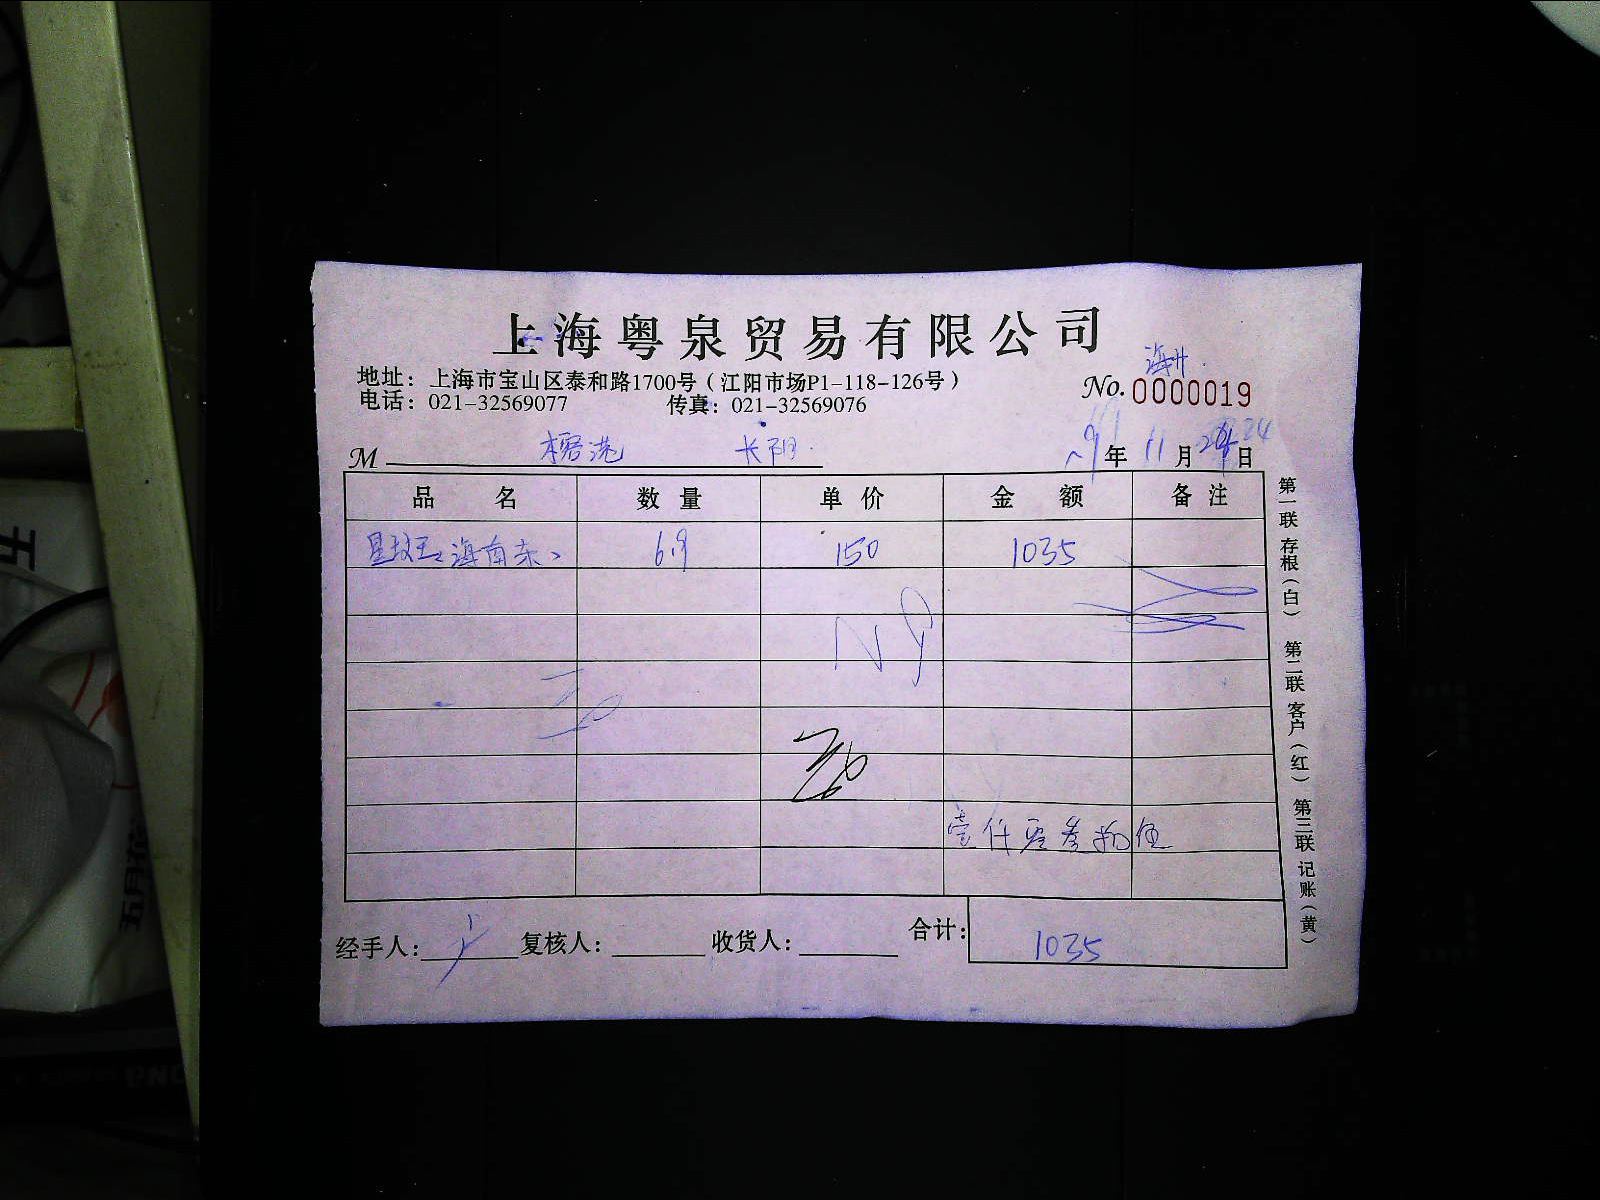 上海粤泉贸易有限公司
地址：上海市宝山区泰和路1700号（江阳市场P1-118-126号）
电话：021-32569077 传真：021-32569076
No. 0000019
M 榕港 长阳
19年 11月 24日
品名 数量 单价 金额 备注
海南东 6.9 150 1035
壹仟零叁拾伍
经手人： 复核人： 收货人： 合计： 1035
第一联 存根（白） 第二联 客户（红） 第三联 记账（黄）